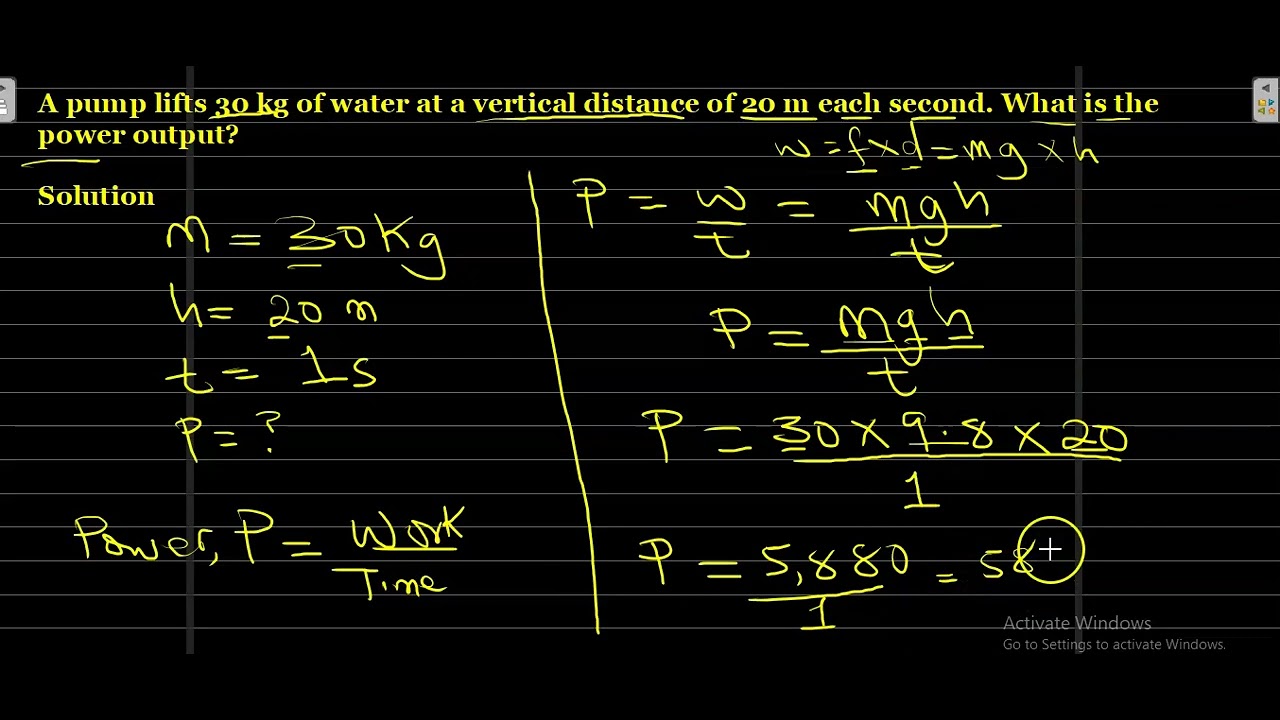 A pump lifts 30 kg of water at a vertical distance of 20 m each second. What is the
power output?
Solution
M = 30 Kg
h = 20 m
t = 1 s
P = ?
Power, P = Work
Time
w = f x d = mg x h
P = w/t = mgh/t
P = mgh/t
P = 30 x 9.8 x 20
1
P = 5,880/1 = 58
Activate Windows
Go to Settings to activate Windows.